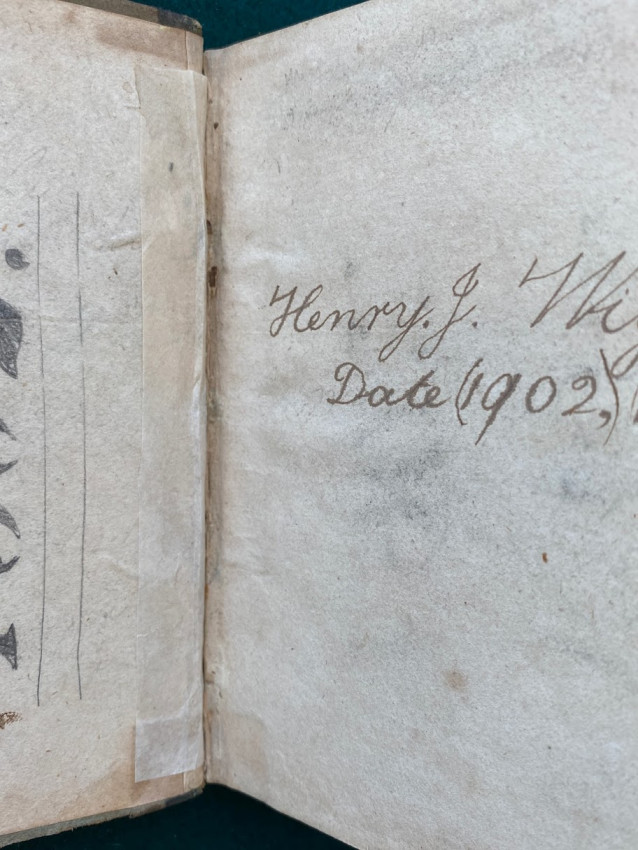 Henry. J.
Date (1902,)